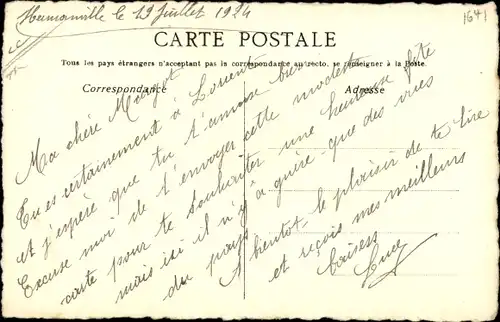 Hermanville le 19 Juillet 1924
1641
CARTE POSTALE
Tous les pays étrangers n'acceptant pas la correspondance au recto, se renseigner à la Poste
Correspondance
Adresse
Ma chère Margot
Tu es certainement à Lorient
et j'espère que tu t'amuse bien
Excuse moi de t'envoyer cette modeste
carte pour te souhaiter une heureuse fête
mais ici il n'y a guère que des vues
du pays
A bientôt le plaisir de te lire
et reçois mes meilleurs
baisers
Luce